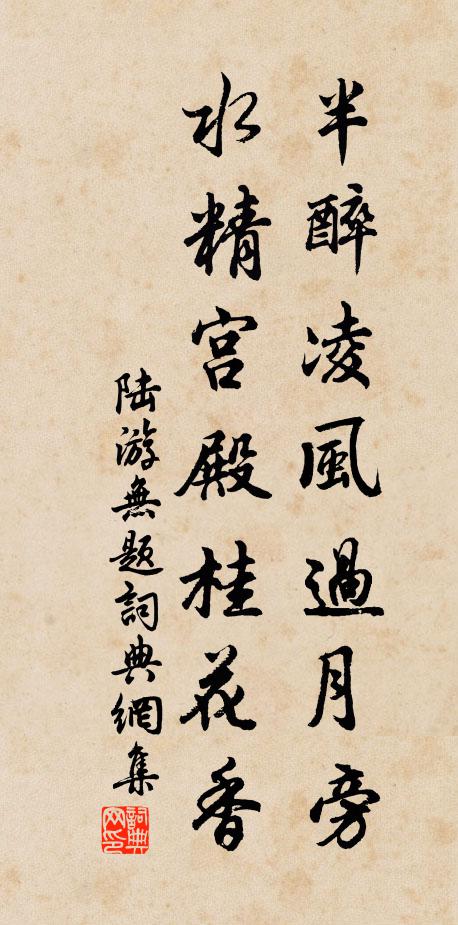 半醉凌風過月旁
水精宮殿桂花香
陆游無题詞典網集
詞典網印